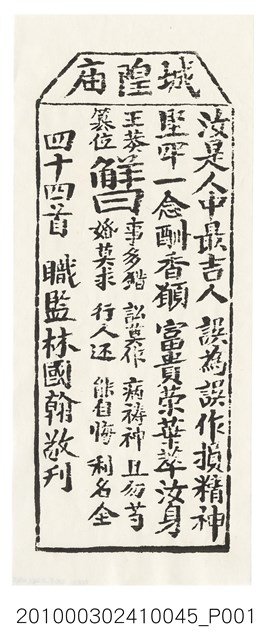 城隍庙
汝是人中最吉人 誤為誤作損精神
堅牢一念酬香願 富貴榮華萃汝身
王莽篡位
解曰
事多猶 訟莫作 病禱神 且勿芍
婚莫求 行人还 能自悔 利名全
四十四首 職監林國翰敬刊
201000302410045_P001